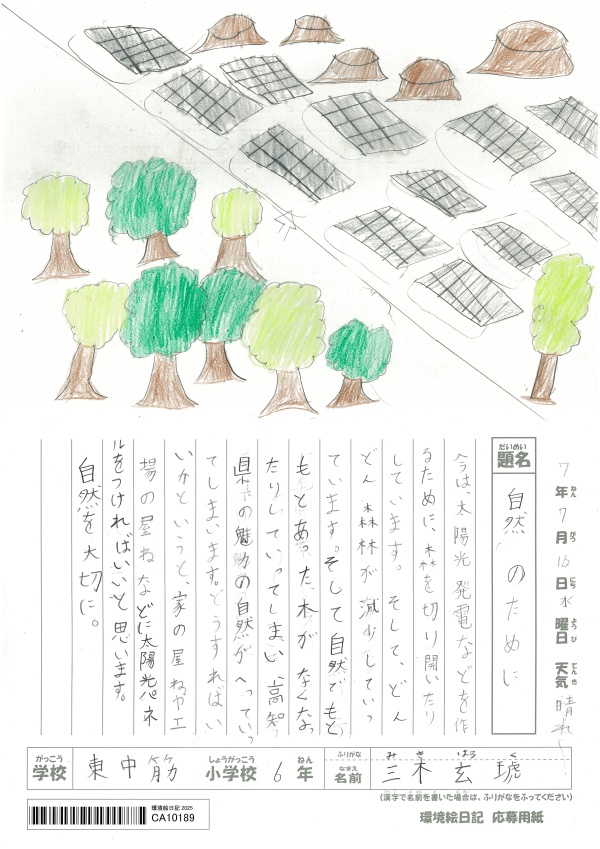 7年ねん7月がつ16日にち水曜日ようび 天気てんき 晴れ
題名だいめい 自然のために
今は、太陽光発電などを作
るために、森を切り開いたり
しています。そして、どん
どん森林が減少していっ
ています。そして自然でもと
もとあった木がなくなっ
たりしていってしまい、高知
県の魅力の自然がへっていっ
てしまいます。どうすればい
いかというと、家の屋ねや工
場の屋ねなどに太陽光パネ
ルをつければいいと思います。
自然を大切に。
がっこう しょうがっこう ねん ふりがな み き はる く
学校 東中筋 小学校 6年 なまえ 名前 三木玄琥
(漢字で名前を書いた場合は、ふりがなをふってください)
環境絵日記 2025
CA10189
環境絵日記 応募用紙